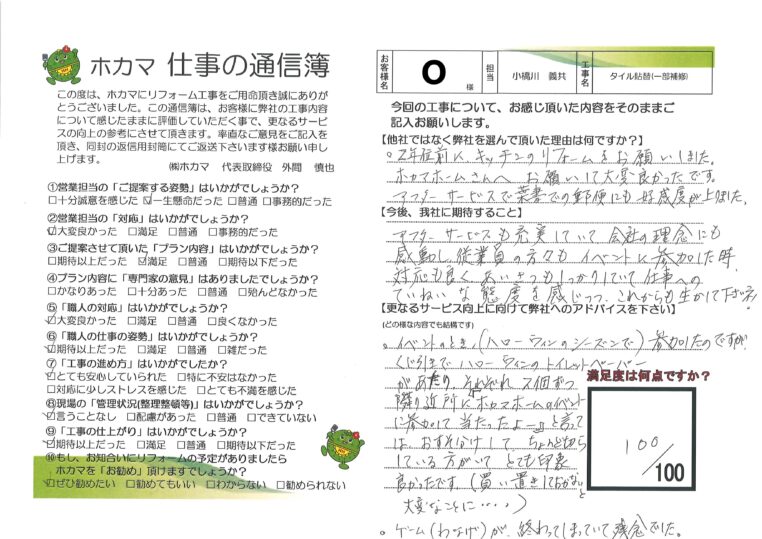 ホカマ 仕事の通信簿
この度は、ホカマにリフォーム工事をご用命頂き誠にありが
とうございました。この通信簿は、お客様に弊社の工事内容
について感じたままに評価していただく事で、更なるサービ
スの向上の参考にさせて頂きます。率直なご意見をご記入を
頂き、同封の返信用封筒にてご返送下さいます様お願い申し
上げます。
㈱ホカマ 代表取締役 外間 慎也
①営業担当の「ご提案する姿勢」はいかがでしょうか?
□十分誠意を感じた ☑一生懸命だった □普通 □事務的だった
②営業担当の「対応」はいかがでしょうか?
☑大変良かった □満足 □普通 □事務的だった
③ご提案させて頂いた「プラン内容」はいかがでしょうか?
□期待以上だった ☑満足 □普通 □期待以下だった
④プラン内容に「専門家の意見」はありましたでしょうか?
□かなりあった □十分あった □普通 □殆んどなかった
⑤「職人の対応」はいかがでしょうか?
☑大変良かった □満足 □普通 □良くなかった
⑥「職人の仕事の姿勢」はいかがでしょうか?
☑期待以上だった □満足 □普通 □雑だった
⑦「工事の進め方」はいかがでしたか?
☑とても安心していられた □特に不安はなかった
□対応に少しストレスを感じた □とても不満を感じた
⑧現場の「管理状況(整理整頓等)」はいかがでしょうか?
☑言うことなし □配慮があった □普通 □できていない
⑨「工事の仕上がり」はいかがでしょうか?
☑期待以上だった □満足 □普通 □期待以下だった
⑩もし、お知合いにリフォームの予定がありましたら
ホカマを「お勧め」頂けますでしょうか?
☑ぜひ勧めたい □勧めてもいい □わからない □勧められない
お客様名 O 様 担当 小橋川 義共 工事名 タイル貼替(一部補修)
今回の工事について、お感じ頂いた内容をそのままご
記入お願いします。
【他社ではなく弊社を選んで頂いた理由は何ですか?】
。2年位前に キッチンのリフォームをお願いしました。
ホカマホームさんへ お願いして大変良かったです。
アフターサービスで葉書での郵便にも 好感度が上りました。
【今後、我社に期待すること】
アフターサービスも充実していて 会社の理念にも
感動し 従業員の方々も イベントに参加した時
対応も良く あいさつもしっかりしていて 仕事への
ていねいな 態度を感じつつ これからも生かして下さい
【更なるサービス向上に向けて弊社へのアドバイスを下さい】
(どの様な内容でも結構です)
。イベントのとき、(ハローウィンのシーズンで) 参加したのですが
くじ引きで ハローウィンのトイレットペーパー
があたり、それぞれ 2個ずつ
隣り近所に ホカマホームのイベント
に参加して 当たったよーと言って
は、おすそわけして ちょんと切ら
している方がいて とても印象
良かったです (買い置きしておかないと
大変なことに・・・)
。ゲーム(わなげ)が、終わってしまっていて 残念でした。
満足度は何点ですか?
100/100